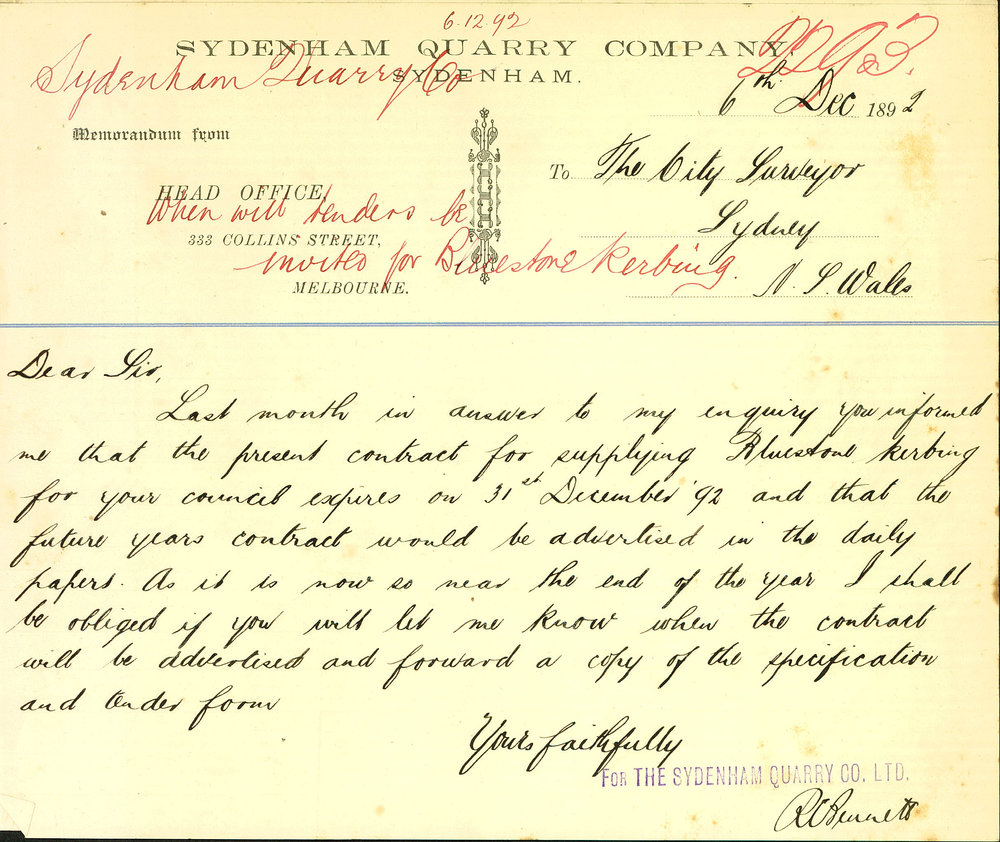 6.12.92
SYDENHAM QUARRY COMPANY.
2293.
Sydenham Quarry Co
SYDENHAM.
6th Dec 1892
Memorandum from
To The City Surveyor
HEAD OFFICE,
When will tenders be
Sydney
333 COLLINS STREET,
invited for Bluestone Kerbing.
MELBOURNE.
N. S. Wales
Dear Sir,
Last month in answer to my enquiry you informed
me that the present contract for supplying Bluestone kerbing
for your council expires on 31st December '92 and that the
future years contract would be advertised in the daily
papers. As it is now so near the end of the year I shall
be obliged if you will let me know when the contract
will be advertised and forward a copy of the specification
and tender form
Yours faithfully
FOR THE SYDENHAM QUARRY CO. LTD.
R C Bennett